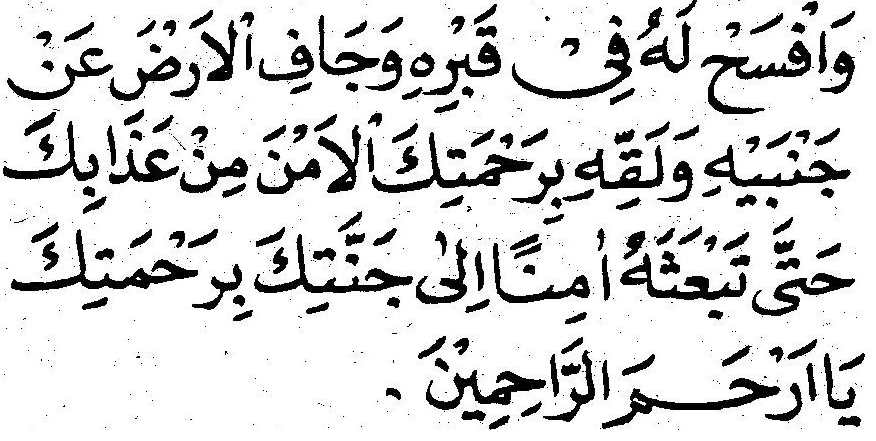 وَافْسَحْ لَهُ فِيْ قَبْرِهِ وَجَافِ اْلاَرْضَ عَنْ
جَنْبَيْهِ وَلَقِّهِ بِرَحْمَتِكَ اْلاَمْنَ مِنْ عَذَابِكَ
حَتَّى تَبْعَثَهُ اٰمِنًا اِلىٰ جَنَّتِكَ بِرَحْمَتِكَ
يَا اَرْحَمَ الرَّاحِمِيْنَ .